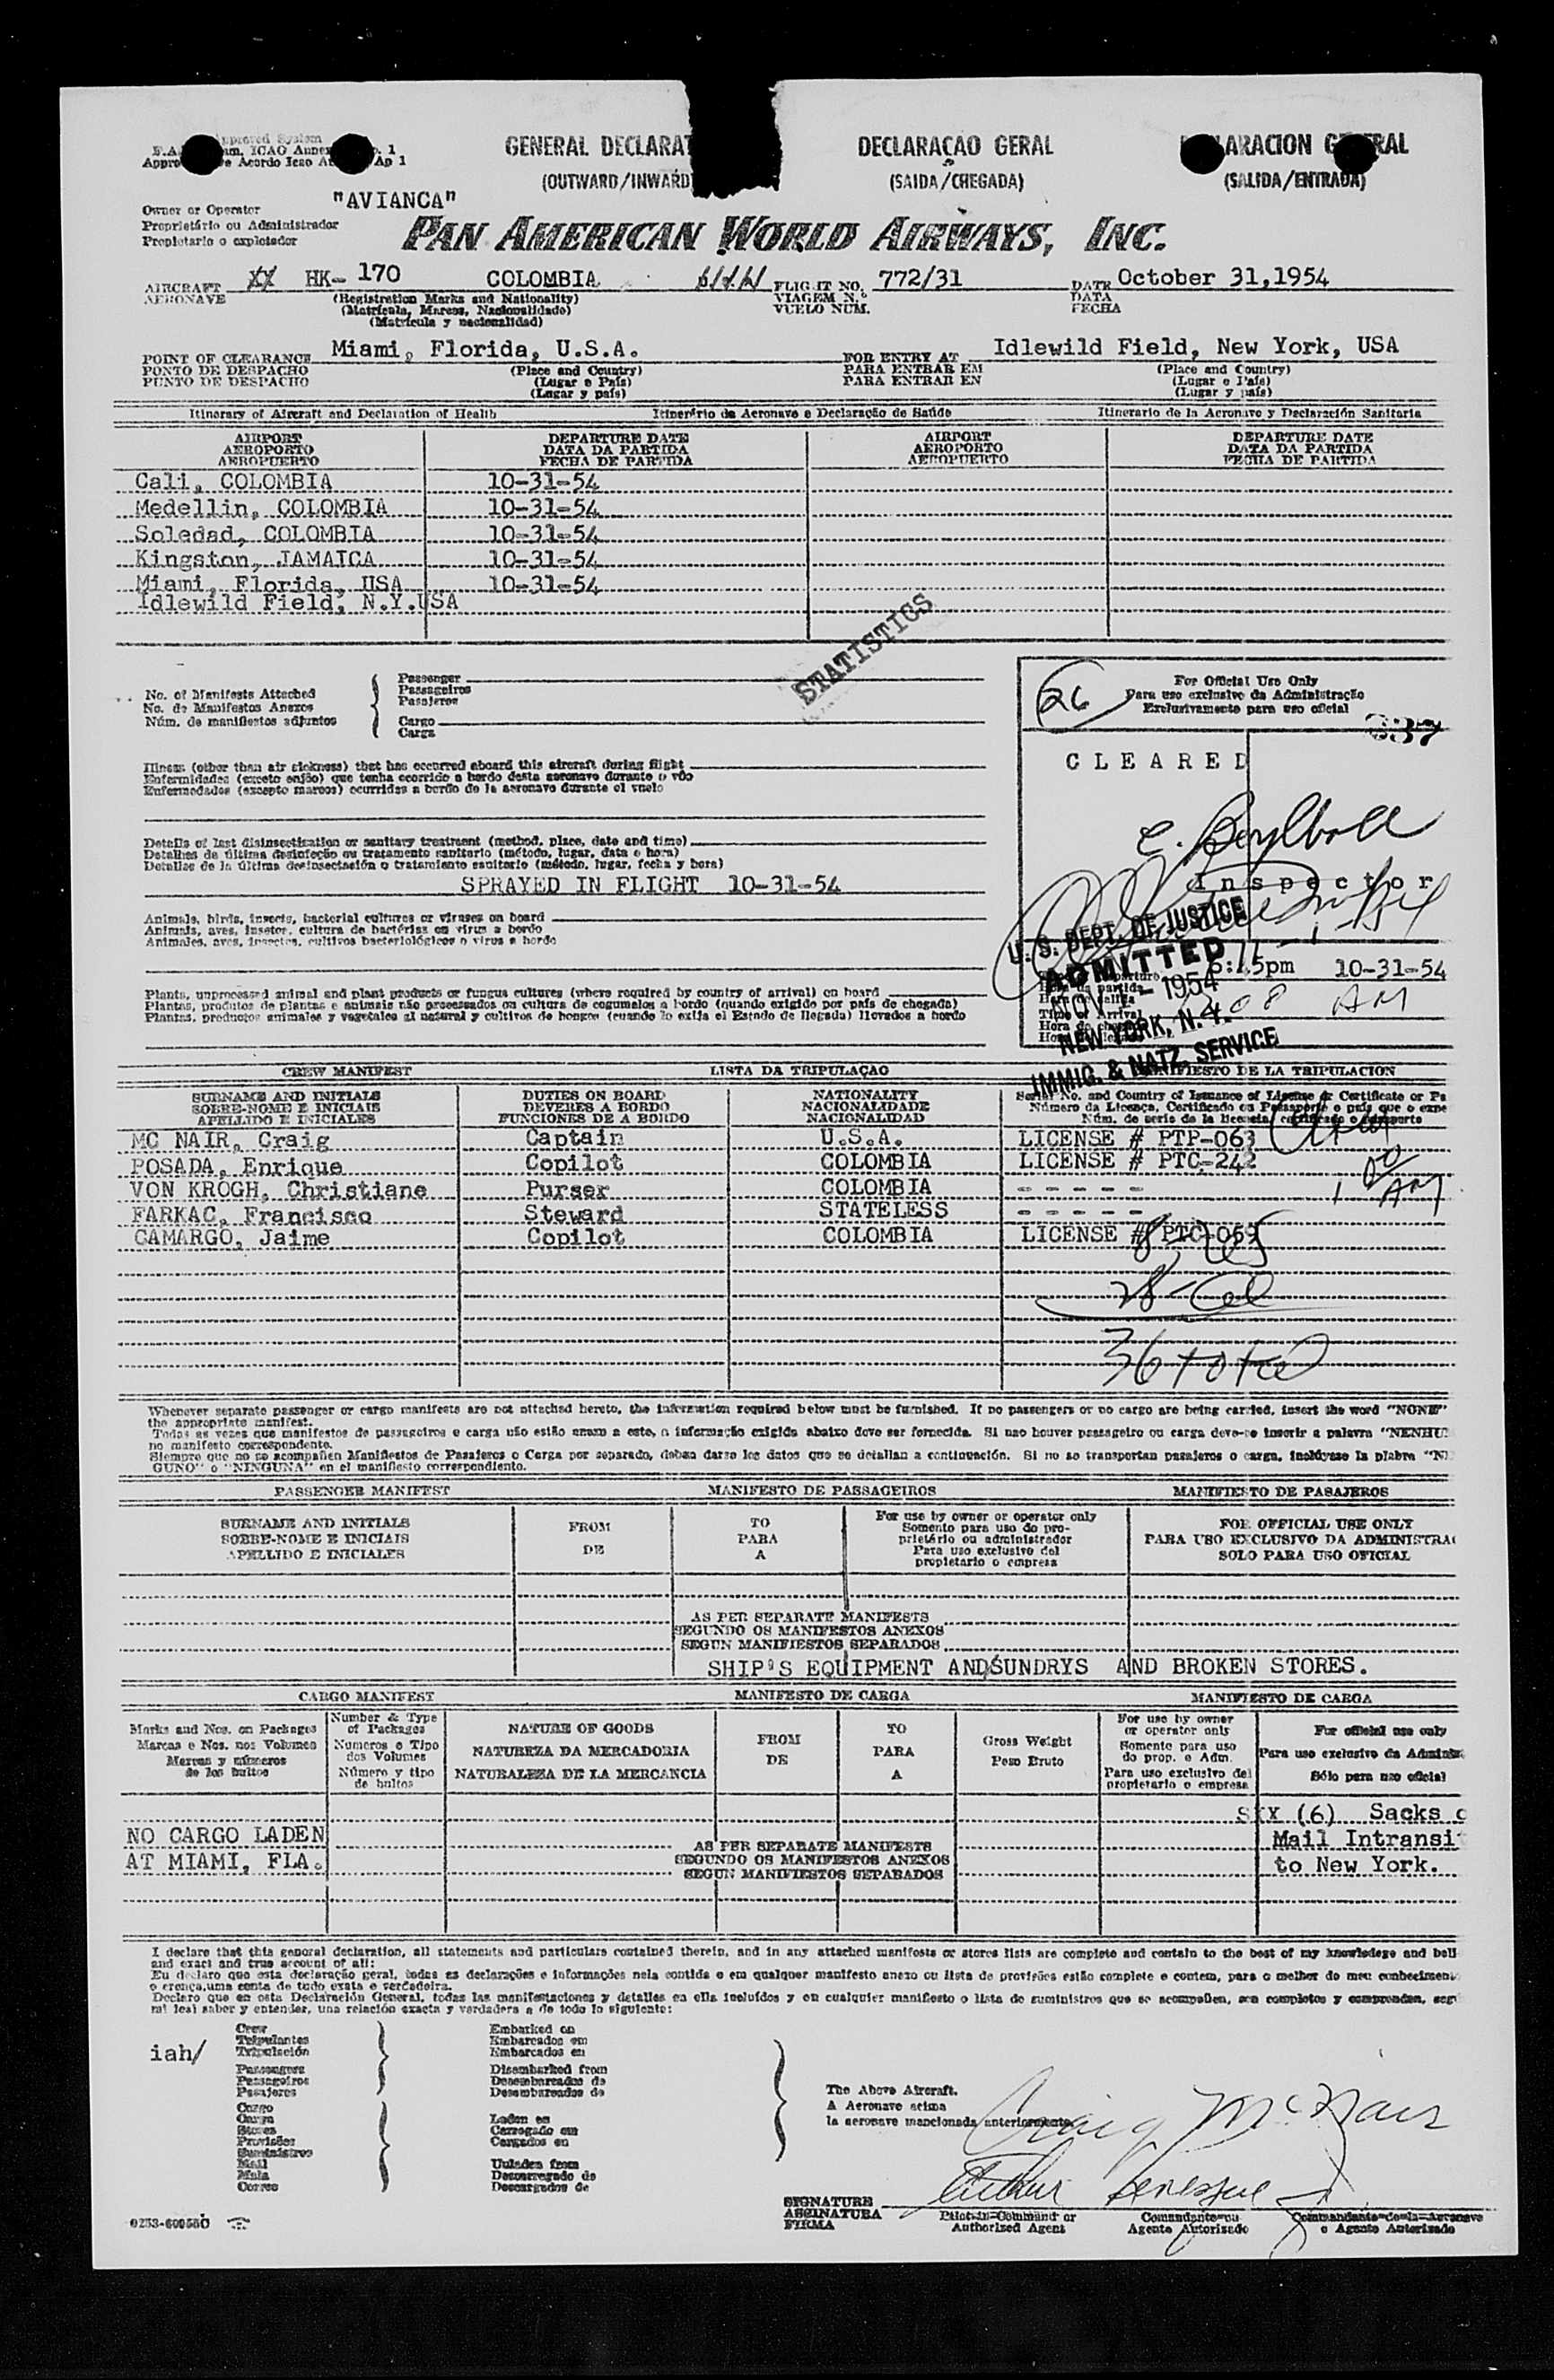 GENERAL DECLARAT
(OUTWARD/INWARD)
DECLARAÇÃO GERAL
(SAIDA/CHEGADA)
ARACION G RAL
(SALIDA/ENTRADA)
"AVIANCA"
Owner or Operator
Proprietário ou Administrador
Propietario o explotador
PAN AMERICAN WORLD AIRWAYS, INC.
AIRCRAFT HK- 170 COLOMBIA FLIGHT NO. 772/31 DATE October 31,1954
AERONAVE
(Registration Marks and Nationality)
VIAGEM N.º
DATA
(Matrícula, Marcas, Nacionalidade)
VUELO NUM.
FECHA
(Matrícula y nacionalidad)
POINT OF CLEARANCE Miami, Florida, U.S.A. FOR ENTRY AT Idlewild Field, New York, USA
PONTO DE DESPACHO (Place and Country) PARA ENTRAR EM (Place and Country)
PUNTO DE DESPACHO (Lugar e País) PARA ENTRAR EN (Lugar e País)
(Lugar y país) (Lugar y país)
Itinerary of Aircraft and Declaration of Health Itinerário da Aeronave e Declaração de Saúde Itinerario de la Aeronave y Declaración Sanitaria
AIRPORT DEPARTURE DATE AIRPORT DEPARTURE DATE
AEROPORTO DATA DA PARTIDA AEROPORTO DATA DA PARTIDA
AEROPUERTO FECHA DE PARTIDA AEROPUERTO FECHA DE PARTIDA
Cali, COLOMBIA 10-31-54
Medellin, COLOMBIA 10-31-54
Soledad, COLOMBIA 10-31-54
Kingston, JAMAICA 10-31-54
Miami, Florida, USA 10-31-54
Idlewild Field, N.Y.USA
STATISTICS
No. of Manifests Attached
No. de Manifestos Anexos
Núm. de manifiestos adjuntos
Passenger
Passageiros
Pasajeros
Cargo
Carga
26
For Official Use Only
Para uso exclusivo da Administração
Exclusivamente para uso oficial
CLEARED
Inspector
Illness (other than air sickness) that has occurred aboard this aircraft during flight
Enfermidades (exceto enjôo) que tenha ocorrido a bordo desta aeronave durante o vôo
Enfermedades (excepto mareos) ocurridas a bordo de la aeronave durante el vuelo
Details of last disinsectization or sanitary treatment (method, place, date and time)
Detalhes de última desinfeção ou tratamento sanitario (método, lugar, data e hora)
Detalles de la última desinsectación o tratamiento sanitario (método, lugar, fecha y hora)
SPRAYED IN FLIGHT 10-31-54
Animals, birds, insects, bacterial cultures or viruses on board
Animais, aves, insetos, cultura de bactérias ou virus a bordo
Animales, aves, insectos, cultivos bacteriológicos o virus a bordo
Plants, unprocessed animal and plant products or fungus cultures (where required by country of arrival) on board
Plantas, produtos de plantas e animais não processados ou cultura de cogumelos a bordo (quando exigido por país de chegada)
Plantas, productos animales y vegetales al natural y cultivos de hongos (cuando lo exija el Estado de llegada) llevados a bordo
U. S. DEPT. OF JUSTICE
ADMITTED
NOV 1 - 1954
NEW YORK, N. Y.
IMMIG. & NATZ. SERVICE
10-31-54
AM
CREW MANIFEST LISTA DA TRIPULAÇAO MANIFIESTO DE LA TRIPULACION
SURNAME AND INITIALS DUTIES ON BOARD NATIONALITY Serial No. and Country of Issuance of License or Certificate or Pa
SOBRE-NOME E INICIAIS DEVERES A BORDO NACIONALIDADE Número da Licença, Certificado ou Passaporte e país que o expe
APELLIDO E INICIALES FUNCIONES DE A BORDO NACIONALIDAD
MC NAIR, Craig Captain U.S.A. LICENSE # PTP-063
POSADA, Enrique Copilot COLOMBIA LICENSE # PTC-242
VON KROGH, Christiane Purser COLOMBIA - - - - -
FARKAC, Francisco Steward STATELESS - - - - -
CAMARGO, Jaime Copilot COLOMBIA LICENSE # PTC-059
36 total
Whenever separate passenger or cargo manifests are not attached hereto, the information required below must be furnished. If no passengers or no cargo are being carried, insert the word "NONE"
the appropriate manifest.
Todas as vezes que manifestos de passageiros e carga não estão anexo a este, a informação exigida abaixo deve ser fornecida. Si nao houver passageiro ou carga deve-se inserir a palavra "NENHU
no manifesto correspondente.
Siempre que no se acompañen Manifiestos de Pasajeros o Carga por separado, deben darse los datos que se detallan a continuación. Si no se transportan pasajeros o carga, inclúyase la plabra "NI
GUNO" o "NINGUNA" en el manifiesto correspondiente.
PASSENGER MANIFEST MANIFESTO DE PASSAGEIROS MANIFIESTO DE PASAJEROS
SURNAME AND INITIALS
SOBRE-NOME E INICIAIS
APELLIDO E INICIALES
FROM
DE
TO
PARA
A
For use by owner or operator only
Somente para uso do pro-
prietário ou administrador
Para uso exclusivo del
propietario o empresa
FOR OFFICIAL USE ONLY
PARA USO EXCLUSIVO DA ADMINISTRAC
SOLO PARA USO OFICIAL
AS PER SEPARATE MANIFESTS
SEGUNDO OS MANIFESTOS ANEXOS
SEGUN MANIFIESTOS SEPARADOS
SHIP'S EQUIPMENT AND SUNDRYS AND BROKEN STORES.
CARGO MANIFEST MANIFESTO DE CARGA MANIFIESTO DE CARGA
Marks and Nos. on Packages
Marcas e Nos. nos Volumes
Marcas y números
de los bultos
Number & Type
of Packages
Numeros e Tipo
dos Volumes
Número y tipo
de bultos
NATURE OF GOODS
NATUREZA DA MERCADORIA
NATURALEZA DE LA MERCANCIA
FROM
DE
TO
PARA
A
Gross Weight
Peso Bruto
For use by owner
or operator only
Somente para uso
do prop. e Adm.
Para uso exclusivo del
propietario o empresa
For official use only
Para uso exclusivo da Adminis
Sólo para uso oficial
SIX (6) Sacks o
NO CARGO LADEN
Mail Intransi
AT MIAMI, FLA.
to New York.
AS PER SEPARATE MANIFESTS
SEGUNDO OS MANIFESTOS ANEXOS
SEGUN MANIFIESTOS SEPARADOS
I declare that this general declaration, all statements and particulars contained therein, and in any attached manifests or stores lists are complete and contain to the best of my knowledege and beli
and exact and true account of all:
Eu declaro que esta declaração geral, todas as declarações e informações nela contida e em qualquer manifesto anexo ou lista de provisões estão complete e contem, para o melhor do meu conhecimen
e crença,uma conta de tudo exata e verdadeira.
Declaro que en esta Declaración General, todas las manifestaciones y detalles en ella incluídos y en cualquier manifiesto o lista de suministros que se acompañen, son completos y comprenden, seg
mi leal saber y entender, una relación exacta y verdadera a de todo lo siguiente:
iah/
Crew
Tripulantes
Tripulación
Passengers
Passageiros
Pasajeros
Cargo
Carga
Stores
Provisões
Suministros
Mail
Mala
Correo
Embarked on
Embarcados em
Embarcados en
Disembarked from
Desembarcados de
Desembarcados de
Laden on
Carregado em
Cargados en
Unladen from
Descarregado de
Descargados de
The Above Aircraft.
A Aeronave acima
la aeronave mancionada anteriormente.
Craig McNair
SIGNATURE
ASSINATURA
FIRMA
Pilot-in-Command or
Authorized Agent
Comandante-ou
Agente Autorizado
Commandante-de-la-Aeronave
o Agente Autorizado